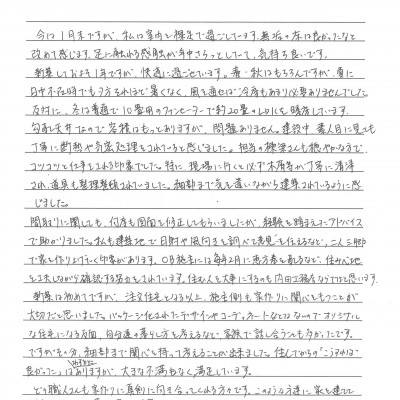 今は1月末ですが、私は室内を裸足で過ごしています。無垢の床は良かったなと
改めて感じます。足に触れる感触が年中さらっとしていて、気持ち良いです。
新築しておよそ1年ですが、快適に過ごせています。春・秋はもちろんですが、夏に
日中不在時でもそれほど暑くなく、風を通せば冷房もあまり必要ありませんでした。
反対に、冬は普通で10畳用のファンヒーターで約20畳のLDKを暖房しています。
勾配天井なので容積はもっとありますが、問題ありません。建設中、素人目に見ても
丁寧に断熱や気密処理をされていると感じました。担当の棟梁さんも穏やかな方で
コツコツと仕事をされる印象でした。特に、現場に行くと必ず木屑等が丁寧に清掃
され、道具も整理整頓されていました。細部まで気を遣いながら建築されているように感
じました。
間取りに関しても、何度も図面を修正してもらいましたが、経験を踏まえたアドバイス
で助かりました。私も建築地で日射や風向きを調べて意見を伝えるなど、二人三脚
で家を作り上げていく印象があります。OB施主には毎年2月に恵方巻を配るなど、住み心地
を工夫しながら確認する努力もされています。住む人を大事にするのも内田工務店ならではと思います。
新築は初めてですが、注文住宅となる以上、施主側も家作りに関心をもつことが
大切だと思いました。パッケージ化されたデザインやコーディネートなどはないのでオリジナル
な住宅になる反面、自分達の暮らし方を考えるなど、家族で話し合うことも多かったです。
ですがその分、細部まで関心を持って考えることが出来ました。住んでからの"こうすれば
良かった"はありますが、大きな不満もなく満足しています。
どの職人さんも家作りに真剣に向き合ってくれる方々です。このような方達に家を建て